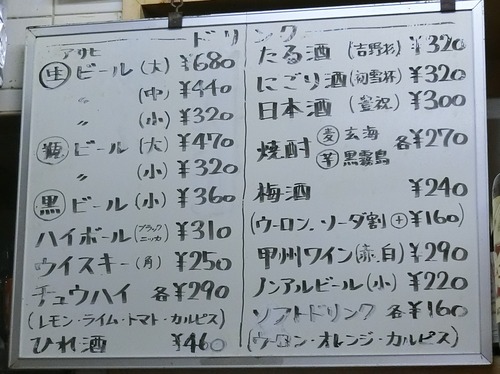 ドリンク
アサヒ
生 ビール (大) ¥680
〃 (中) ¥440
〃 (小) ¥320
瓶 ビール (大) ¥470
〃 (小) ¥320
黒 ビール (小) ¥360
ハイボール (ブラックニッカ) ¥310
ウイスキー (角) ¥250
チュウハイ 各¥290
(レモン・ライム・トマト・カルピス)
ひれ酒 ¥460
たる酒 (吉野杉) ¥320
にごり酒 (初雪杯) ¥320
日本酒 (豊祝) ¥300
焼酎 麦 玄海 各¥270
芋 黒霧島
梅酒 ¥240
(ウーロン、ソーダ割 + ¥160)
甲州ワイン (赤、白) ¥290
ノンアルビール (小) ¥220
ソフトドリンク 各¥160
(ウーロン・オレンジ・カルピス)